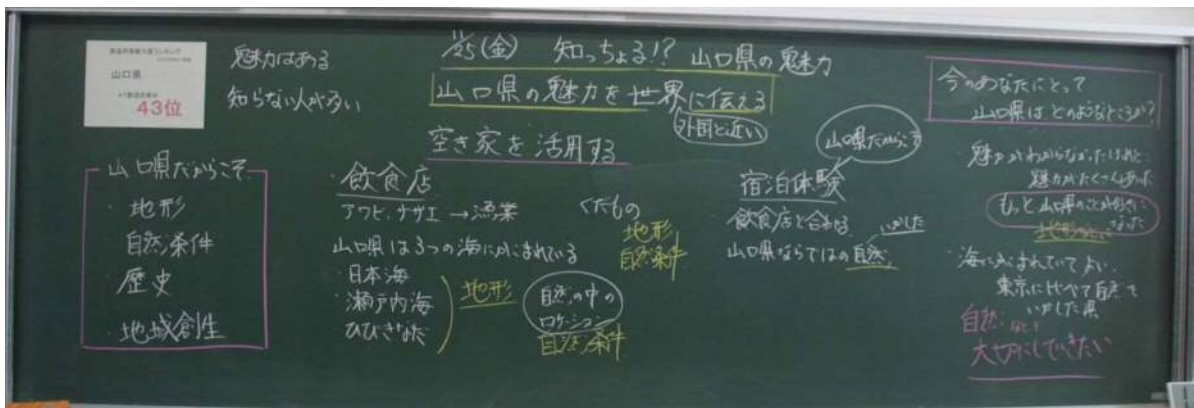 山口県
43位
魅力はある
知らない人が多い
11/25(金) 知っちょる!? 山口県の魅力
山口県の魅力を世界に伝える
外国と近い
空き家を活用する
山口県だからこそ
・地形
・自然条件
・歴史
・地域創生
・飲食店
アワビ、サザエ→漁業 くだもの
地形
自然条件
山口県は3つの海にかこまれている
・日本海
・瀬戸内海
・ひびきなだ
地形
自然の中の
ロケーション
自然条件
山口県だからこそ
・宿泊体験
飲食店と合わせる
いかした
山口県ならではの自然
今のあなたにとって
山口県はどのようなところか?
・魅力がわからなかったけれど
魅力がたくさんあった
もっと山口県のことが好きに
なった
・海にかこまれていてよい
東京に比べて自然を
いかした県
自然
大切にしていきたい